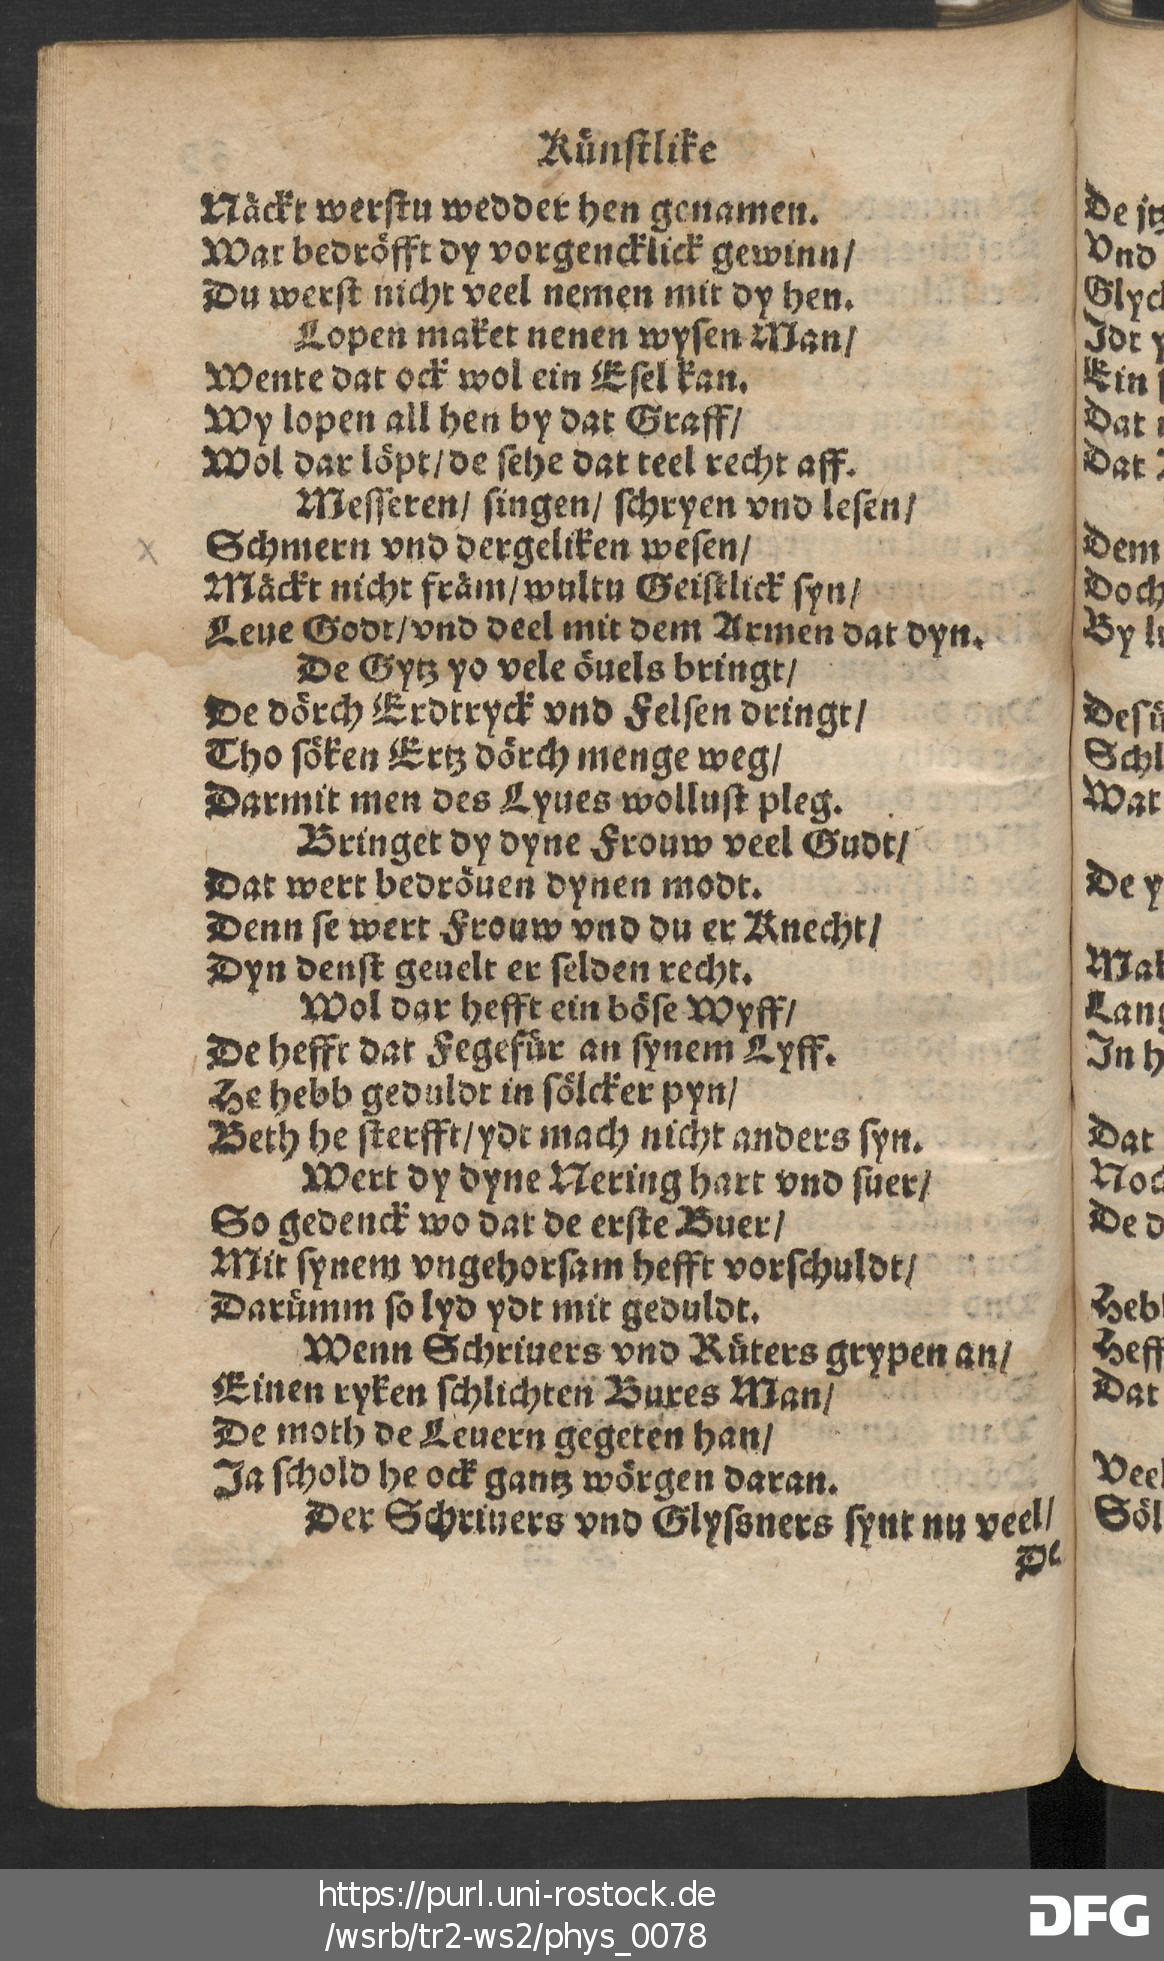 Künstlike
Näckt werstu wedder hen genamen.
War bedröfft dy vorgencklick gewinn/
Du werst nicht veel nemen mit dy hen.
Lopen maket nenen wysen Man/
Wente dat ock wol ein Esel kan.
Wy lopen all hen by dat Graff/
Wol dar löpt/de sehe dat teel recht aff.
Messeren/ singen/ schryen vnd lesen/
Schmern vnd dergeliken wesen/
Mäckt nicht främ/wultu Geistlick syn/
Leue Godt/vnd deel mit dem Armen dat dyn.
De Gytz yo vele öuels bringt/
De dörch Erdtryck vnd Felsen dringt/
Tho söken Ertz dörch menge weg/
Darmit men des Lyues wollust pleg.
Bringet dy dyne Frouw veel Gudt/
Dat wert bedröuen dynen modt.
Denn se wert Frouw vnd du er Knecht/
Dyn denst geuelt er selden recht.
Wol dar hefft ein böse Wyff/
De hefft dat Fegefür an synem Lyff.
He hebb geduldt in sölcker pyn/
Beth he sterfft/ydt mach nicht anders syn.
Wert dy dyne Nering hart vnd suer/
So gedenck wo dat de erste Buer/
Mit synem vngehorsam hefft vorschuldt/
Darümm so lyd ydt mit geduldt.
Wenn Schriuers vnd Rüters grypen an/
Einen ryken schlichten Bures Man/
De moth de Leuern gegeten han/
Ja schold he ock gantz wörgen daran.
Der Schriuers vnd Glyssners synt nu veel/
De
De
Vnd
Ein
Dat
Dat
Dem
Doch
By
Schl
War
De
Lang
In
Dat
De
Dat
https://purl.uni-rostock.de
/wsrb/tr2-ws2/phys_0078
DFG